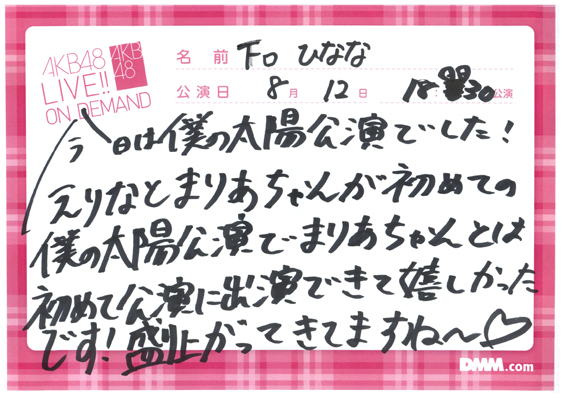 AKB48
LIVE!!
ON DEMAND
AKB
48
名前 下口 ひなな
公演日 8月 12日 18:30公演
今日は僕の太陽公演でした！
えりなとまりあちゃんが初めての
僕の太陽公演でまりあちゃんとは
初めて公演に出演できて嬉しかった
です！盛上がってきてますね〜♡
DMM.com